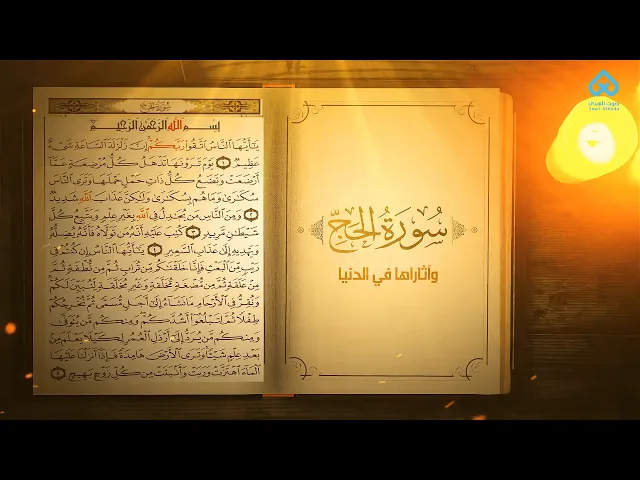 سورة الحج
بسم الله الرحمن الرحيم
يَٰٓأَيُّهَا ٱلنَّاسُ ٱتَّقُوا۟ رَبَّكُمْ إِنَّ زَلْزَلَةَ ٱلسَّاعَةِ شَىْءٌ
عَظِيمٌ ١ يَوْمَ تَرَوْنَهَا تَذْهَلُ كُلُّ مُرْضِعَةٍ عَمَّآ
أَرْضَعَتْ وَتَضَعُ كُلُّ ذَاتِ حَمْلٍ حَمْلَهَا وَتَرَى ٱلنَّاسَ
سُكَٰرَىٰ وَمَا هُم بِسُكَٰرَىٰ وَلَٰكِنَّ عَذَابَ ٱللَّهِ شَدِيدٌ
٢ وَمِنَ ٱلنَّاسِ مَن يُجَٰدِلُ فِى ٱللَّهِ بِغَيْرِ عِلْمٍ وَيَتَّبِعُ كُلَّ
شَيْطَٰنٍ مَّرِيدٍ ٣ كُتِبَ عَلَيْهِ أَنَّهُۥ مَن تَوَلَّاهُ فَأَنَّهُۥ يُضِلُّهُۥ
وَيَهْدِيهِ إِلَىٰ عَذَابِ ٱلسَّعِيرِ ٤ يَٰٓأَيُّهَا ٱلنَّاسُ إِن كُنتُمْ فِى
رَيْبٍ مِّنَ ٱلْبَعْثِ فَإِنَّا خَلَقْنَٰكُم مِّن تُرَابٍ ثُمَّ مِن نُّطْفَةٍ ثُمَّ
مِنْ عَلَقَةٍ ثُمَّ مِن مُّضْغَةٍ مُّخَلَّقَةٍ وَغَيْرِ مُخَلَّقَةٍ لِّنُبَيِّنَ لَكُمْ
وَنُقِرُّ فِى ٱلْأَرْحَامِ مَا نَشَآءُ إِلَىٰٓ أَجَلٍ مُّسَمًّى ثُمَّ نُخْرِجُكُمْ
طِفْلًا ثُمَّ لِتَبْلُغُوٓا۟ أَشُدَّكُمْ وَمِنكُم مَّن يُتَوَفَّىٰ
وَمِنكُم مَّن يُرَدُّ إِلَىٰٓ أَرْذَلِ ٱلْعُمُرِ لِكَيْلَا يَعْلَمَ مِنۢ
بَعْدِ عِلْمٍ شَيْـًٔا وَتَرَى ٱلْأَرْضَ هَامِدَةً فَإِذَآ أَنزَلْنَا عَلَيْهَا
ٱلْمَآءَ ٱهْتَزَّتْ وَرَبَتْ وَأَنۢبَتَتْ مِن كُلِّ زَوْجٍۭ بَهِيجٍ ٥
سُورَةُ الحَجّ
وآثاراها في الدنيا